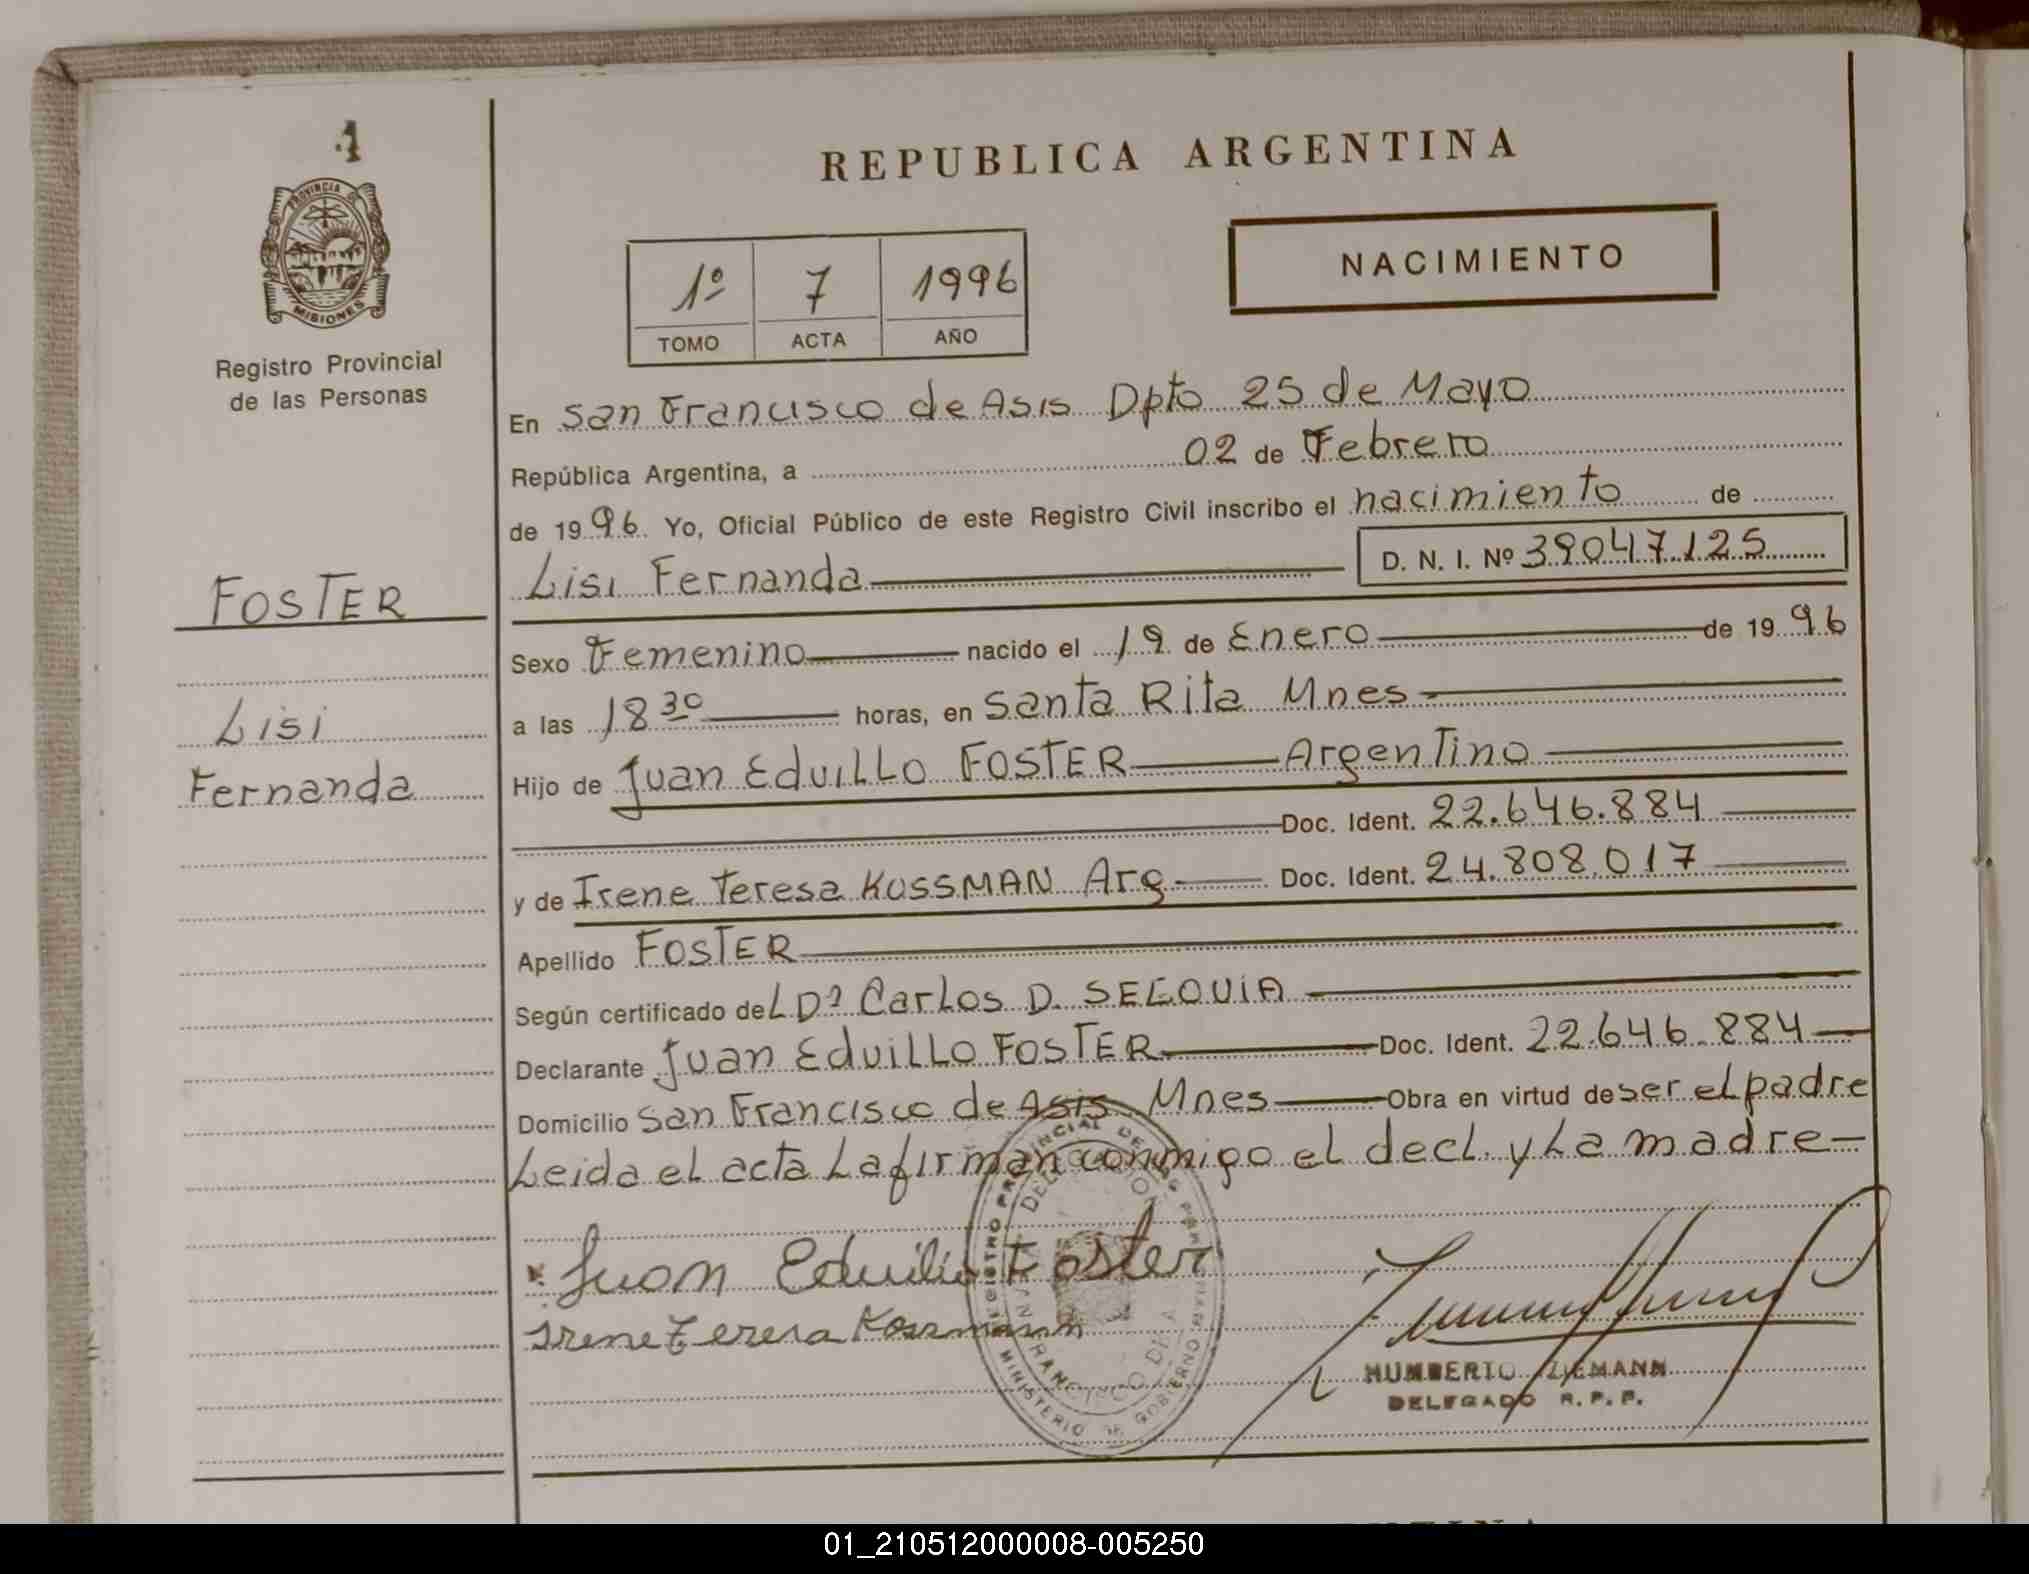 1
PROVINCIA DE
MISIONES
Registro Provincial
de las Personas
FOSTER
Lisi
Fernanda
REPUBLICA ARGENTINA
1º 7 1996
TOMO ACTA AÑO
NACIMIENTO
En San Francisco de Asis Dpto 25 de Mayo
República Argentina, a 02 de Febrero
de 1996. Yo, Oficial Público de este Registro Civil inscribo el nacimiento de
Lisi Fernanda D. N. I. Nº 39047125
Sexo Femenino nacido el 19 de Enero de 1996
a las 18 30 horas, en Santa Rita Mnes
Hijo de Juan Eduillo FOSTER Argentino
Doc. Ident. 22.646.884
y de Irene Teresa KOSSMAN Arg Doc. Ident. 24.808.017
Apellido FOSTER
Según certificado del Dr Carlos D. SEGOVIA
Declarante Juan Eduillo FOSTER Doc. Ident. 22.646.884
Domicilio San Francisco de Asis Mnes Obra en virtud de ser el padre
Leida el acta la firman conmigo el decl. y la madre
Juan Eduilio Foster
Irene Teresa Kossmann
HUMBERTO ZIEMANN
DELEGADO R. P. P.
MINISTERIO DE GOBIERNO
01_210512000008-005250